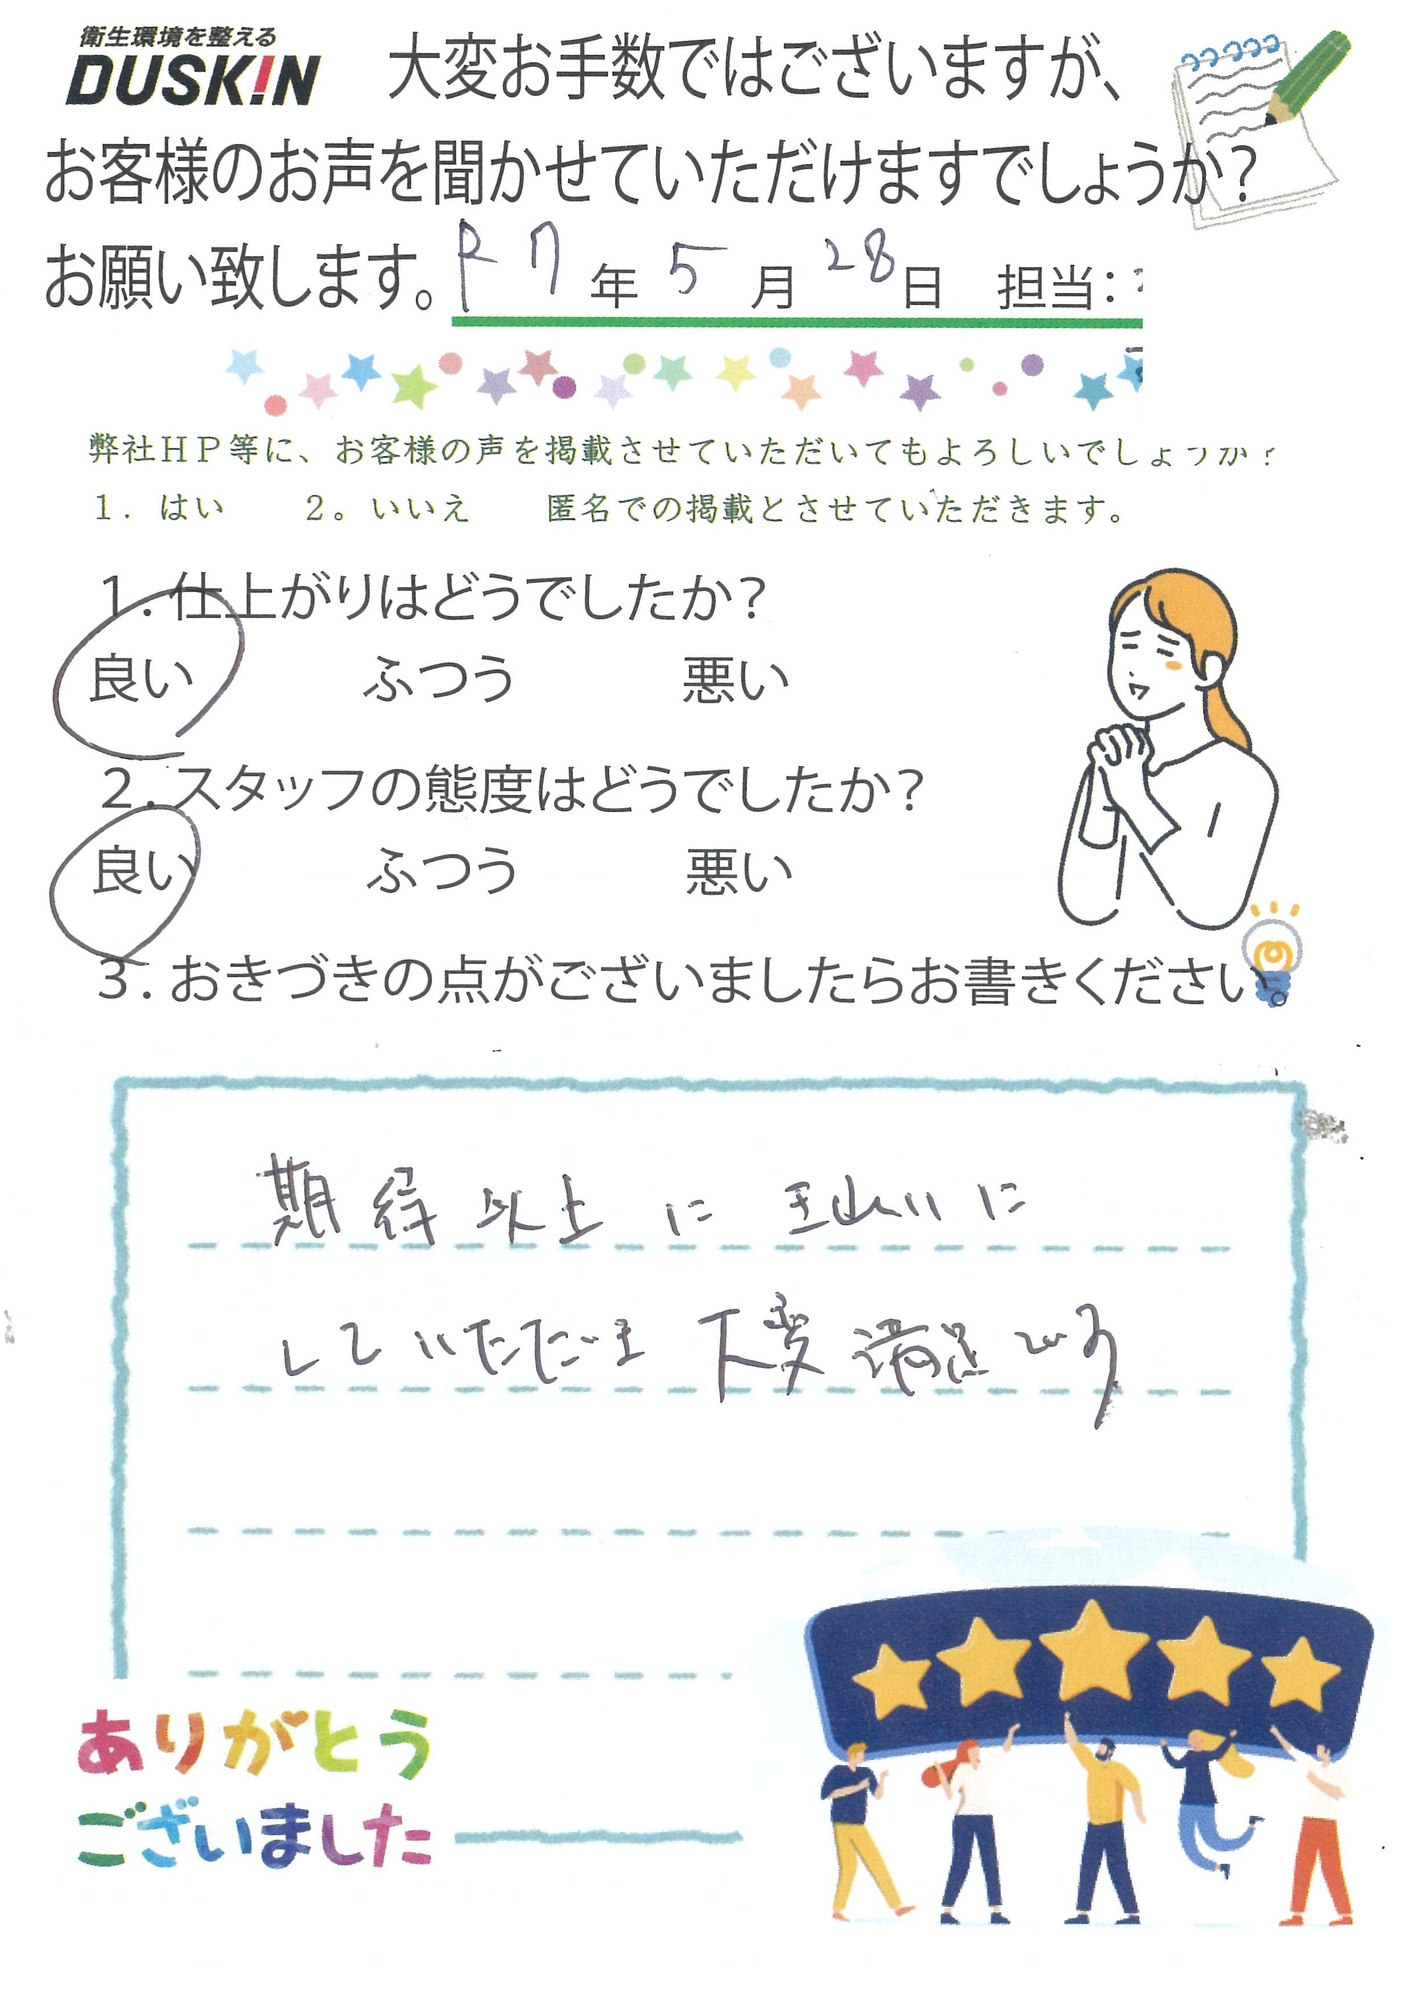 衛生環境を整える
DUSKIN
大変お手数ではございますが、
お客様のお声を聞かせていただけますでしょうか?
お願い致します。 R7年5月28日 担当:
弊社HP等に、お客様の声を掲載させていただいてもよろしいでしょうか?
1. はい 2。いいえ 匿名での掲載とさせていただきます。
1. 仕上がりはどうでしたか?
良い ふつう 悪い
2. スタッフの態度はどうでしたか?
良い ふつう 悪い
3. おきづきの点がございましたらお書きください
期待以上に きれいに
していただき 大変満足です
ありがとう
ございました